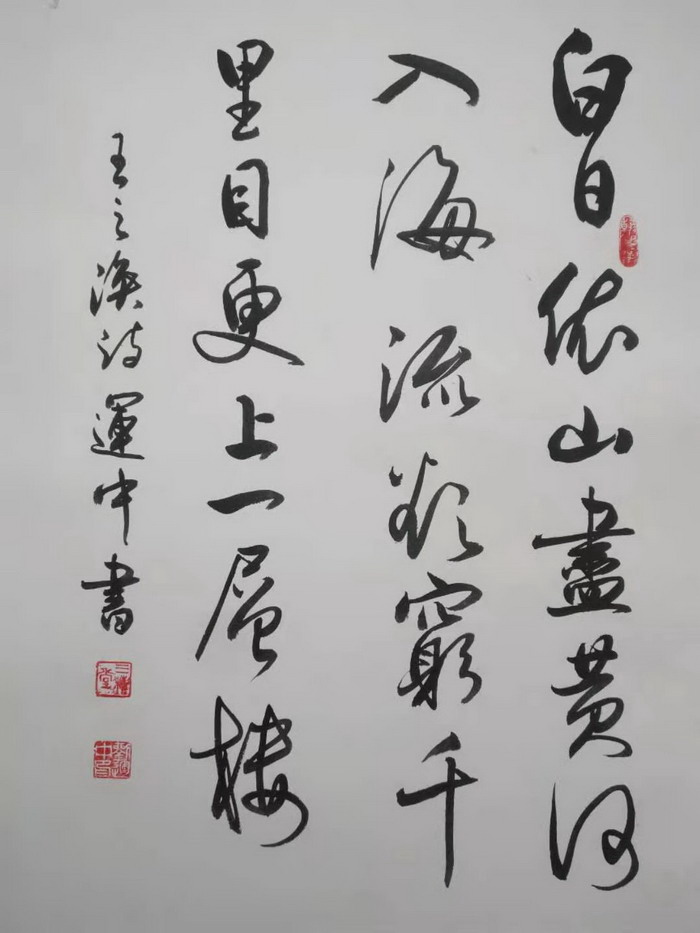 白日依山盡黄河
入海流欲窮千
里目更上一層樓
王之渙詩運中書